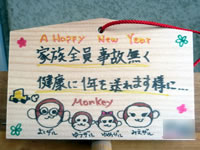 A Happy New Year
家族全員事故無く
健康に1年を送れます様に…
Monkey